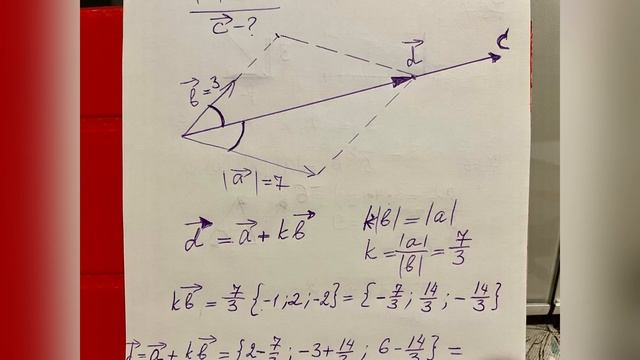 c⃗ - ?
d⃗
c
b⃗ = 3
|a⃗| = 7
d⃗ = a⃗ + kb⃗
k|b| = |a|
k = |a|/|b| = 7/3
kb⃗ = 7/3 {-1; 2; -2} = {-7/3; 14/3; -14/3}
d⃗ = a⃗ + kb⃗ = {2 - 7/3; -3 + 14/3; 6 - 14/3} =